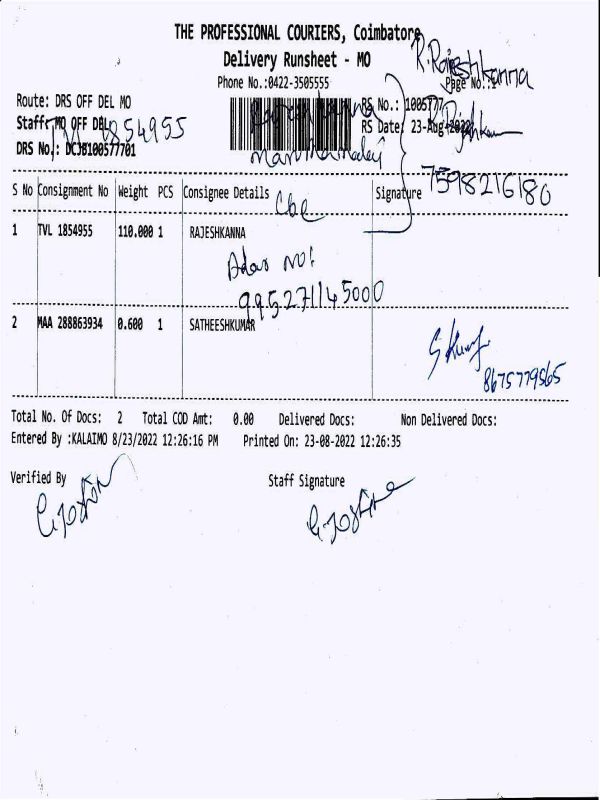 THE PROFESSIONAL COURIERS, Coimbatore
Delivery Runsheet - MO
R. Rajeshkanna
Phone No.:0422-3505555
Page No.:1
Route: DRS OFF DEL MO
RS No.: 1005777
Staff: MO OFF DEL
1854955
RS Date: 23-Aug-2022
DRS No.: DCJB100577701
7598216180
S No Consignment No Weight PCS Consignee Details Signature
Cbe
1 TVL 1854955 110.000 1 RAJESHKANNA
Adar NO:
995271145000
2 MAA 288863934 0.600 1 SATHEESHKUMAR
8675779565
Total No. Of Docs: 2 Total COD Amt: 0.00 Delivered Docs: Non Delivered Docs:
Entered By :KALAIMO 8/23/2022 12:26:16 PM Printed On: 23-08-2022 12:26:35
Verified By Staff Signature